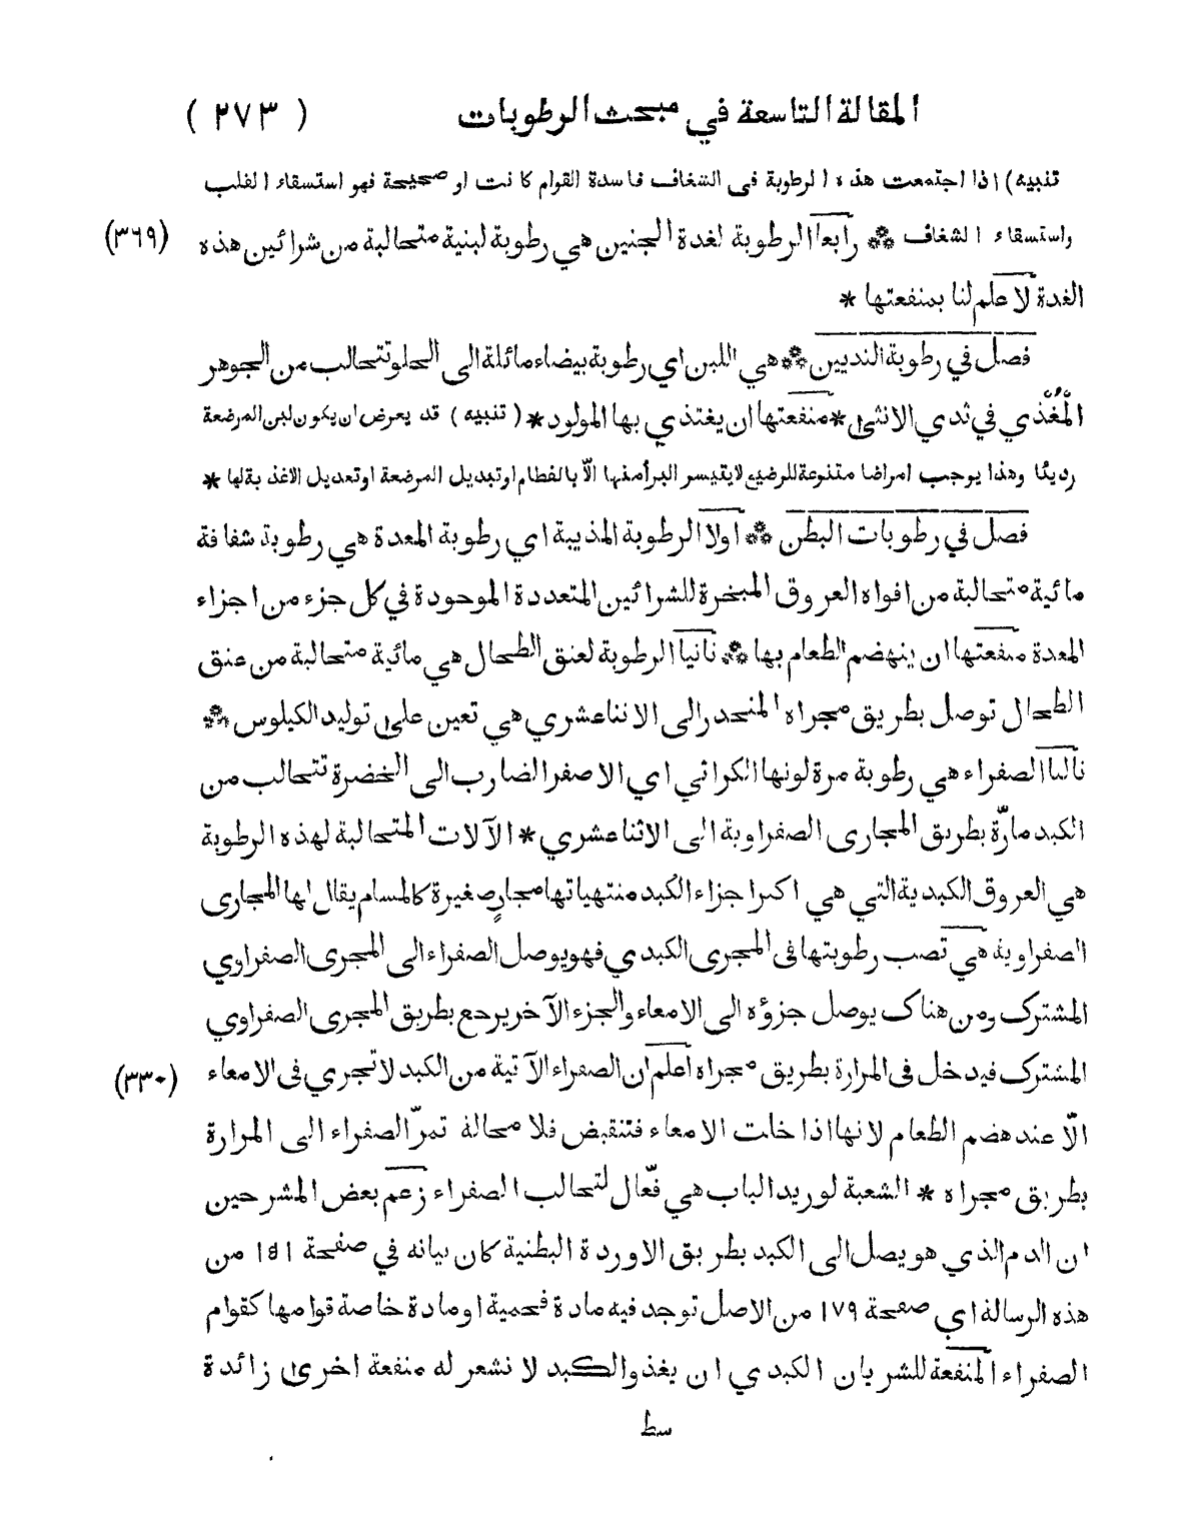 المقالة التاسعة في مبحث الرطوبات ( ٢٧٣ )
تنبيه) اذا اجتمعت هذه الرطوبة فى الشغاف فاسدة القوام كانت او صحيحة فهو استسقاء القلب
واستسقاء الشغاف ⁂ رابعاً الرطوبة لغدة الجنين هي رطوبة لبنية متحالبة من شرائين هذه (٣٦٩)
الغدة لا علم لنا بمنفعتها *
فصل في رطوبة الثديين ⁂ هي اللبن اي رطوبة بيضاء مائلة الى الحلو تتحالب من الجوهر
المُغَذّي في ثدي الانثى * منفعتها ان يغتذي بها المولود * ( تنبيه ) قد يعرض ان يكون لبن المرضعة
رديئا وهذا يوجب امراضا متنوعة للرضيع لايتيسر البرأ منها الاّ بالفطام او تبديل المرضعة او تعديل الاغذية لها *
فصل في رطوبات البطن ⁂ اولا الرطوبة المذيبة اي رطوبة المعدة هي رطوبة شفافة
مائية متحالبة من افواه العروق المبخرة للشرائين المتعددة الموجودة في كل جزء من اجزاء
المعدة منفعتها ان ينهضم الطعام بها ⁂ ثانيا الرطوبة لعنق الطحال هي مائية متحالبة من عنق
الطحال توصل بطريق مجراه المنحدر الى الاثناعشري هي تعين على توليد الكيلوس ⁂
ثالثا الصفراء هي رطوبة مرة لونها الكراثي اي الاصفر الضارب الى الخضرة تتحالب من
الكبد مارّة بطريق المجارى الصفراوية الى الاثناعشري * الآلات المتحالبة لهذه الرطوبة
هي العروق الكبدية التي هي اكبر اجزاء الكبد منتهياتها مجارٍ صغيرة كالمسام يقال لها المجارى
الصفراوية هي تصب رطوبتها فى المجرى الكبدي فهو يوصل الصفراء الى المجرى الصفراوي
المشترك ومن هناك يوصل جزؤه الى الامعاء والجزء الآخر يرجع بطريق المجرى الصفراوي
المشترك فيدخل فى المرارة بطريق مجراه اعلم ان الصفراء الآتية من الكبد لا تجري فى الامعاء (٣٣٠)
الاّ عند هضم الطعام لانها اذا خلت الامعاء فتنقبض فلا محالة تمرّ الصفراء الى المرارة
بطريق مجراه * الشعبة لوريد الباب هي فعّال لتحالب الصفراء زعم بعض المشرحين
ان الدم الذي هو يصل الى الكبد بطريق الاوردة البطنية كان بيانه في صفحة ١٨١ من
هذه الرسالة اي صفحة ١٧٩ من الاصل توجد فيه مادة فحمية او مادة خاصة قوامها كقوام
الصفراء المنفعة للشريان الكبدي ان يغذو الكبد لا نشعر له منفعة اخرى زائدة
سط